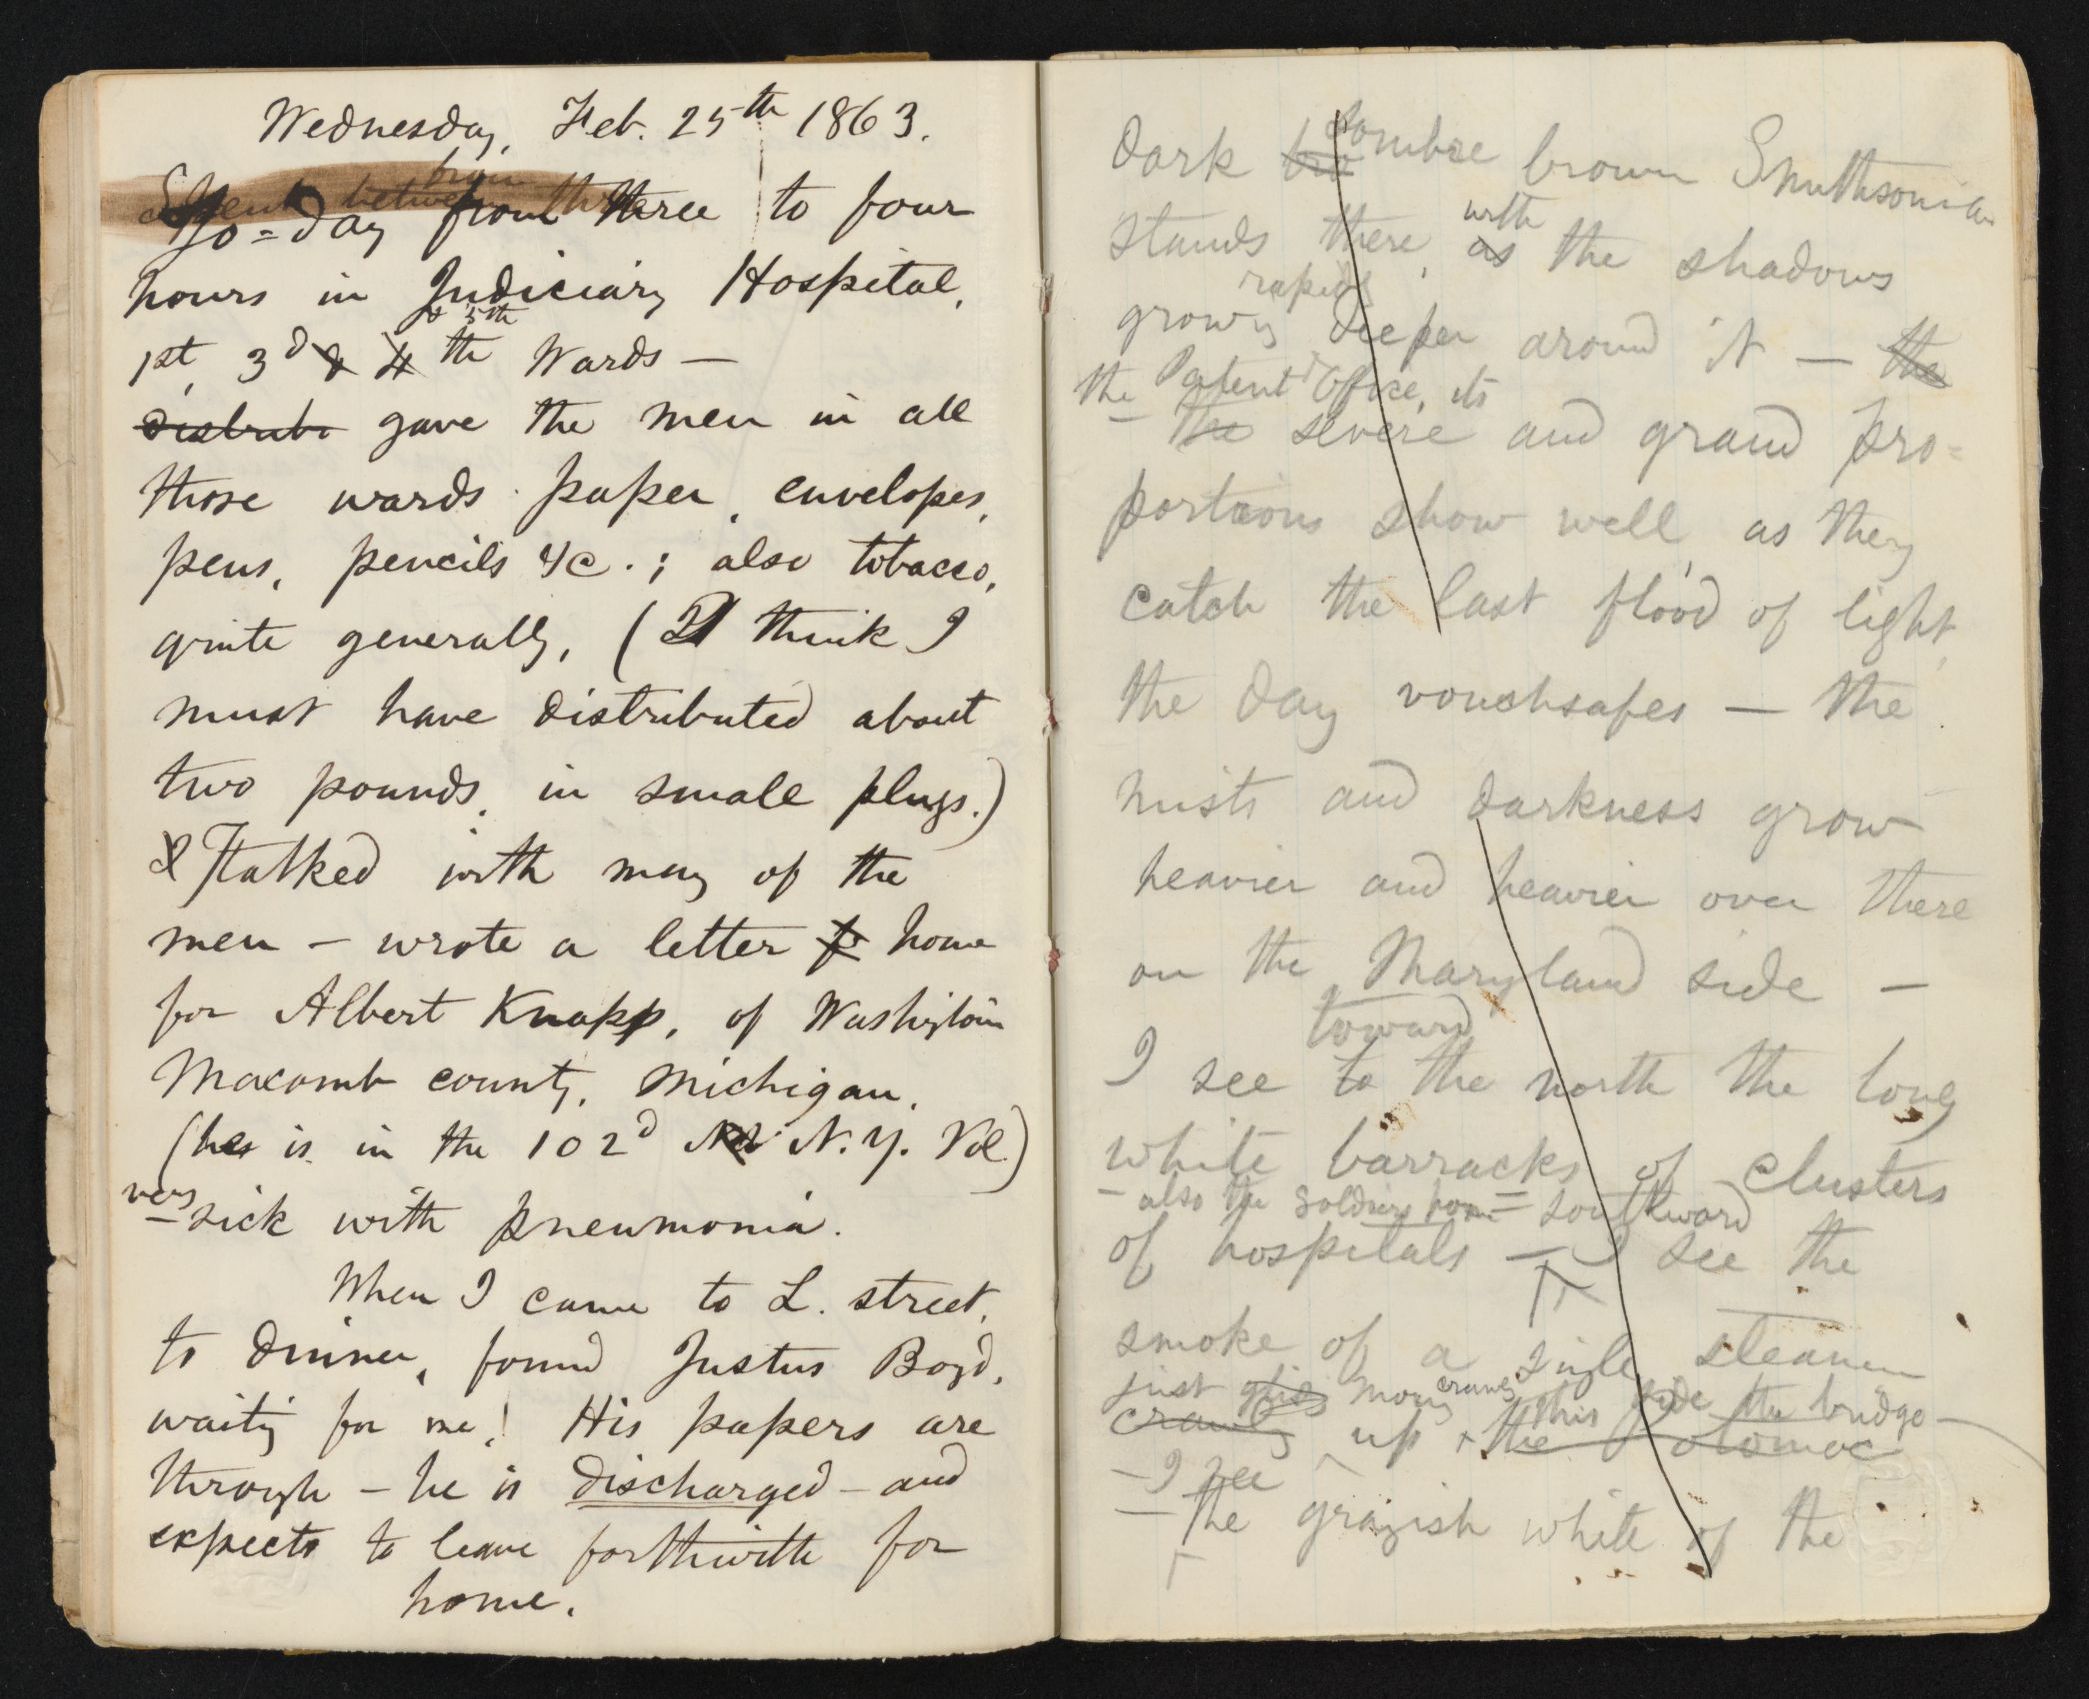 Wednesday, Feb. 25th 1863.
To-day from three to four
hours in Judiciary Hospital,
& 5th
1st, 3d & 4th Wards —
distribu gave the men in all
those wards paper, envelopes,
pens, pencils &c.; also tobacco,
quite generally, (I think I
must have distributed about
two pounds, in small plugs.)
& I talked with many of the
men – wrote a letter to home
for Albert Knapp, of Washington
Macomb county, Michigan,
(he is in the 102d N.Y. Vol.)
very
– sick with pneumonia.
When I came to L. street,
to dinner, found Justus Boyd,
waiting for me! His papers are
through – he is discharged – and
expects to leave forthwith for
home.
sombre
dark bro brown Smithsonian
with
stands there, as the shadows
rapidly
growing deeper around it — the
the Patent Office, its
the severe and grand pro-
portions show well, as they
catch the last flood of light,
the day vouchsafes — the
mists and darkness grow
heavier and heavier over there
on the Maryland side —
toward
I see to the north the long
white barracks of clusters
– also the soldiers home = southward
of hospitals — I see the
smoke of a single steamer
just moving crawling this side the bridge —
crawling up the Potomac
– I see
— the grayish white of the